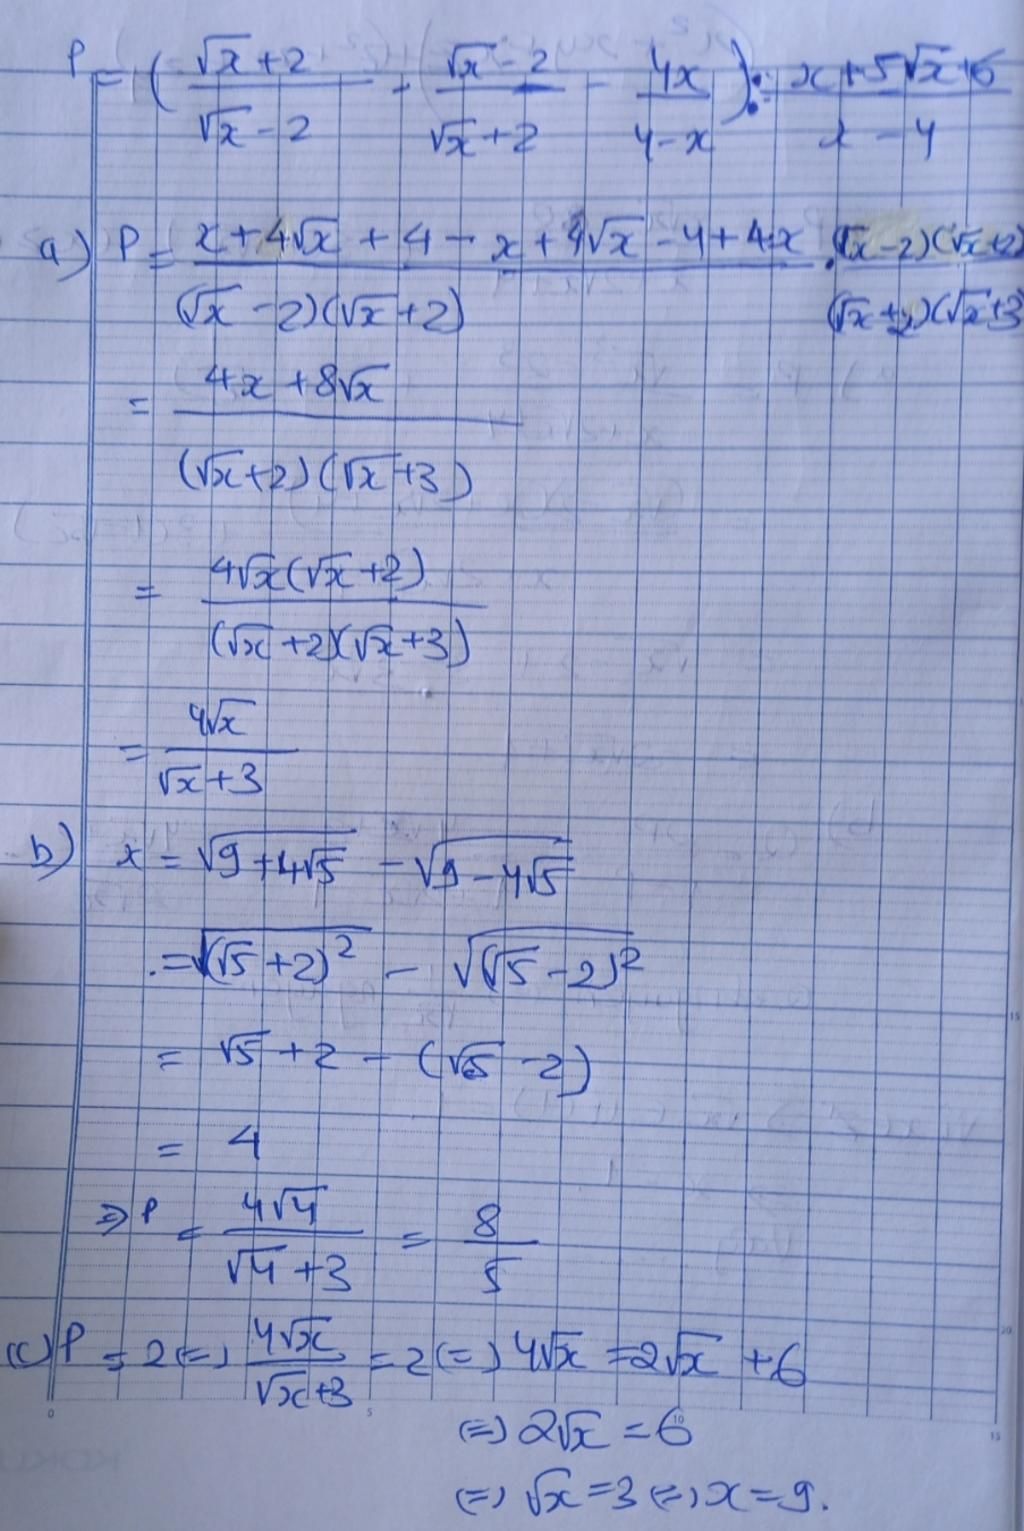 P = ( (√x + 2)/(√x - 2) - (√x - 2)/(√x + 2) - 4x/(4 - x) ) : (x + 5√x + 6)/(x - 4)
a) P = (x + 4√x + 4 - x + 4√x - 4 + 4x)/((√x - 2)(√x + 2)) . ((√x - 2)(√x + 2))/((√x + 2)(√x + 3))
= (4x + 8√x)/((√x + 2)(√x + 3))
= (4√x(√x + 2))/((√x + 2)(√x + 3))
= 4√x/(√x + 3)
b) x = √(9 + 4√5) - √(9 - 4√5)
= √((√5 + 2)²) - √((√5 - 2)²)
= √5 + 2 - (√5 - 2)
= 4
=> P = 4√4/(√4 + 3) = 8/5
c) P = 2 (=) 4√x/(√x + 3) = 2 (=) 4√x = 2√x + 6
(=) 2√x = 6
(=) √x = 3 (=) x = 9.